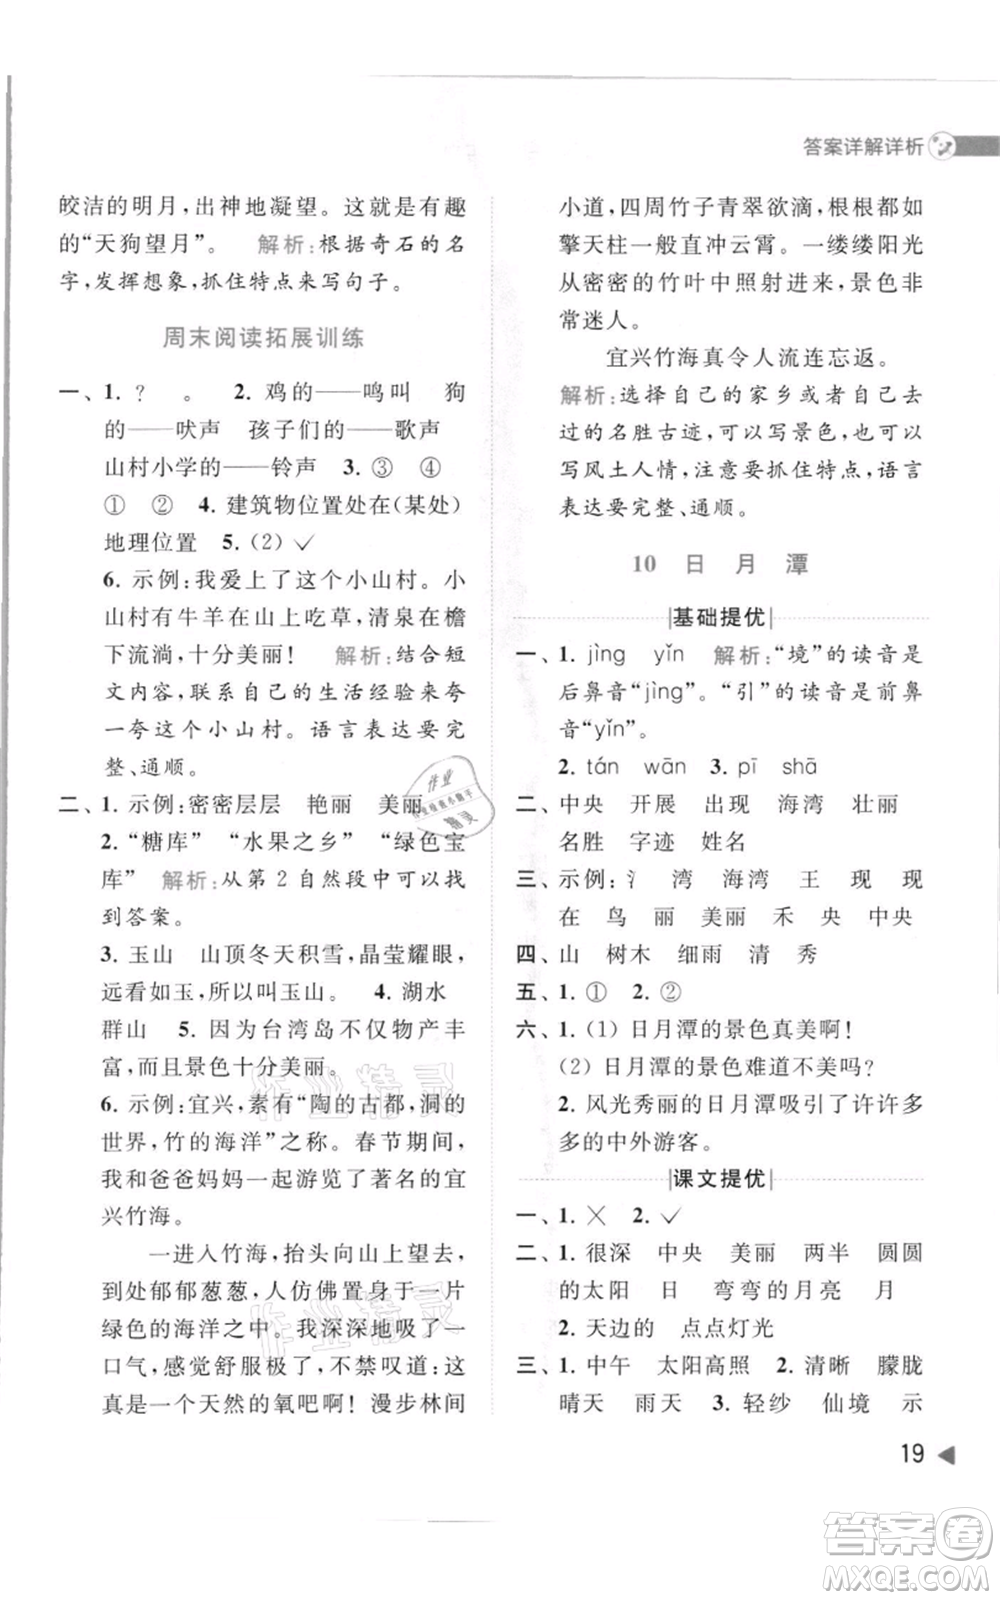 答案详解详析
皎洁的明月,出神地凝望。这就是有趣
的“天狗望月”。 解析:根据奇石的名
字,发挥想象,抓住特点来写句子。
周末阅读拓展训练
一、1. ? 。 2. 鸡的——鸣叫 狗
的——吠声 孩子们的——歌声
山村小学的——铃声 3. ③ ④
① ② 4. 建筑物位置处在(某处)
地理位置 5. (2)✓
6. 示例:我爱上了这个小山村。小
山村有牛羊在山上吃草,清泉在檐
下流淌,十分美丽! 解析:结合短
文内容,联系自己的生活经验来夸
一夸这个小山村。语言表达要完
整、通顺。
二、1. 示例:密密层层 艳丽 美丽
2. “糖库” “水果之乡” “绿色宝
库” 解析:从第 2 自然段中可以找
到答案。
3. 玉山 山顶冬天积雪,晶莹耀眼,
远看如玉,所以叫玉山。 4. 湖水
群山 5. 因为台湾岛不仅物产丰
富,而且景色十分美丽。
6. 示例:宜兴,素有“陶的古都,洞的
世界,竹的海洋”之称。春节期间,
我和爸爸妈妈一起游览了著名的宜
兴竹海。
一进入竹海,抬头向山上望去,
到处郁郁葱葱,人仿佛置身于一片
绿色的海洋之中。我深深地吸了一
口气,感觉舒服极了,不禁叹道:这真
是一个天然的氧吧啊!漫步林间
小道,四周竹子青翠欲滴,根根都如
擎天柱一般直冲云霄。一缕缕阳光
从密密的竹叶中照射进来,景色非
常迷人。
宜兴竹海真令人流连忘返。
解析:选择自己的家乡或者自己去
过的名胜古迹,可以写景色,也可以
写风土人情,注意要抓住特点,语言
表达要完整、通顺。
10 日 月 潭
基础提优
一、1. jìng yǐn 解析:“境”的读音是
后鼻音“jìng”。“引”的读音是前鼻
音“yǐn”。
2. tán wān 3. pī shā
二、中央 开展 出现 海湾 壮丽
名胜 字迹 姓名
三、示例:氵 湾 海湾 王 现 现
在 鸟 丽 美丽 禾 央 中央
四、山 树木 细雨 清 秀
五、1. ① 2. ②
六、1. (1) 日月潭的景色真美啊!
(2) 日月潭的景色难道不美吗?
2. 风光秀丽的日月潭吸引了许许多
多的中外游客。
课文提优
一、1. ✕ 2. ✓
二、1. 很深 中央 美丽 两半 圆圆
的太阳 日 弯弯的月亮 月
2. 天边的 点点灯光
三、1. 中午 太阳高照 2. 清晰 朦胧
晴天 雨天 3. 轻纱 仙境 示
19
作业精灵
作业精灵
答案圈
MXQE.COM